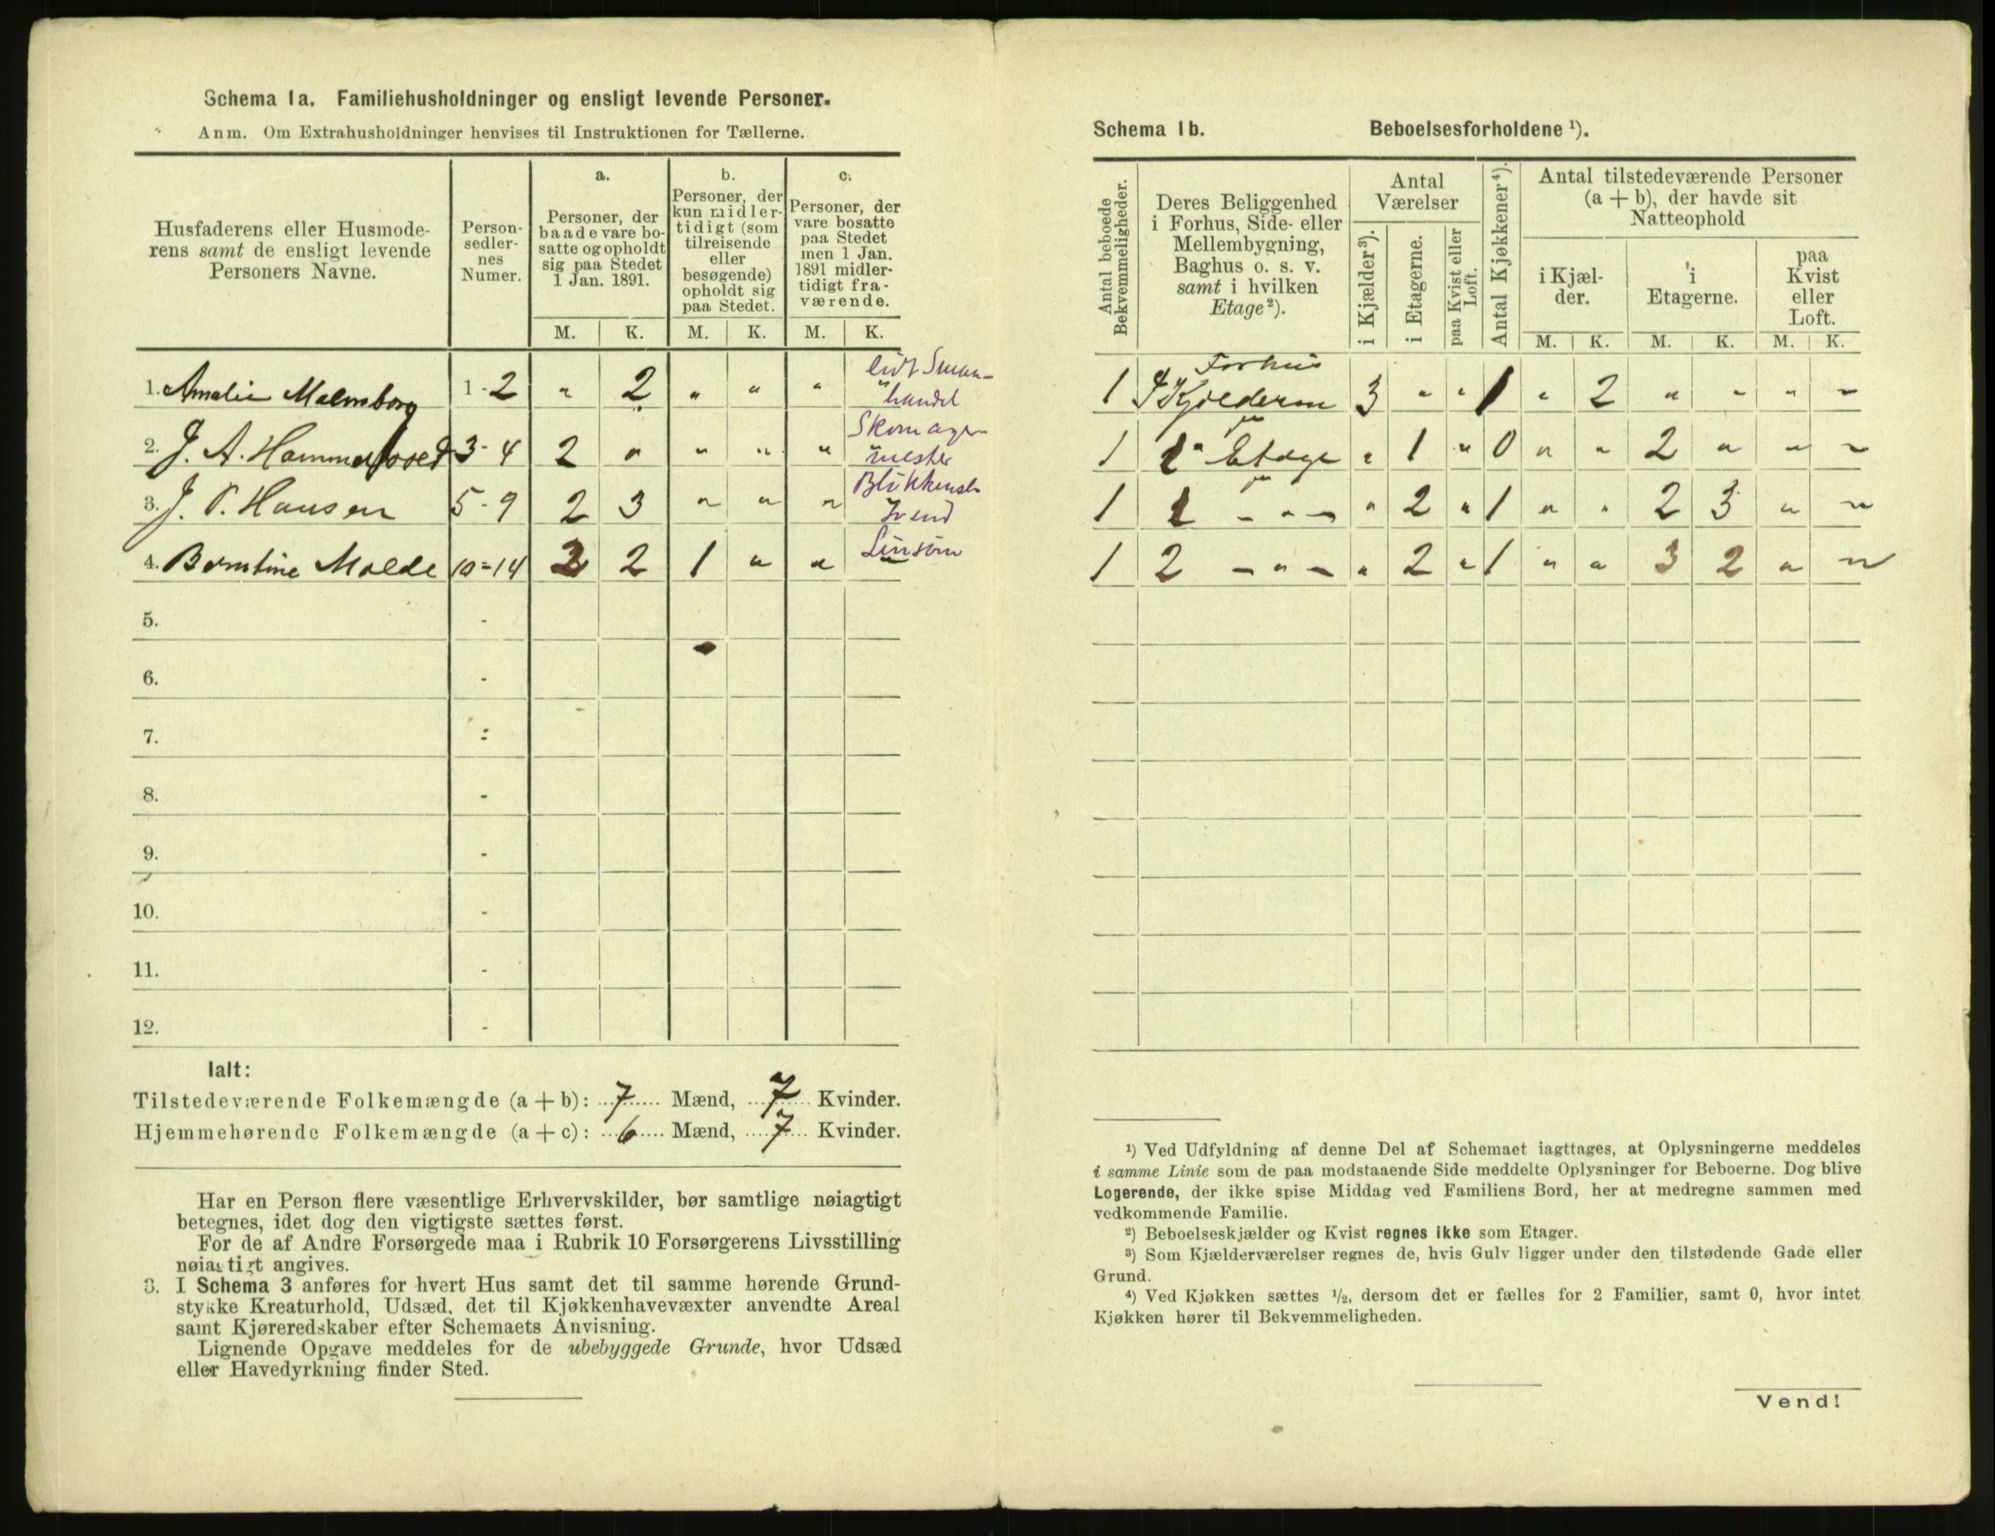 Schema 1a. Familiehusholdninger og ensligt levende Personer.
Anm. Om Extrahusholdninger henvises til Instruktionen for Tællerne.
Husfaderens eller Husmode-
rens samt de ensligt levende
Personers Navne.
Person-
sedler-
nes
Numer.
a.
Personer, der
baade vare bo-
satte og opholdt
sig paa Stedet
1 Jan. 1891.
b.
Personer, der
kun midler-
tidigt (som
tilreisende
eller
besøgende)
opholdt sig
paa Stedet.
c.
Personer, der
vare bosatte
paa Stedet
men 1 Jan.
1891 midler-
tidigt fra-
værende.
M. K. M. K. M. K.
1. Amalie Malmborg 1-2 " 2 " " " " lidt Smaa-
handel
2. J. A. Hammersved 3-4 2 " " " " " Skomager-
mester
3. J. P. Hansen 5-9 2 3 " " " Blikkensl-
svend
4. Berntine Molde 10-14 2 2 1 " " " Linsøm
5. -
6. -
7. -
8. -
9. -
10. -
11. -
12. -
Ialt:
Tilstedeværende Folkemængde (a + b): 7 Mænd, 7 Kvinder.
Hjemmehørende Folkemængde (a + c): 6 Mænd, 7 Kvinder.
Har en Person flere væsentlige Erhvervskilder, bør samtlige nøiagtigt
betegnes, idet dog den vigtigste sættes først.
For de af Andre Forsørgede maa i Rubrik 10 Forsørgerens Livsstilling
nøiagtigt angives.
3. I Schema 3 anføres for hvert Hus samt det til samme hørende Grund-
stykke Kreaturhold, Udsæd, det til Kjøkkenhavevæxter anvendte Areal
samt Kjøreredskaber efter Schemaets Anvisning.
Lignende Opgave meddeles for de ubebyggede Grunde, hvor Udsæd
eller Havedyrkning finder Sted.
Schema 1b. Beboelsesforholdene ¹).
Antal beboede
Bekvemmeligheder.
Deres Beliggenhed
i Forhus, Side- eller
Mellembygning,
Baghus o. s. v.
samt i hvilken
Etage²).
Antal
Værelser
i Kjælder³).
i Etagerne.
paa Kvist eller
Loft.
Antal Kjøkkener⁴).
Antal tilstedeværende Personer
(a + b), der havde sit
Natteophold
i Kjæl-
der.
i
Etagerne.
paa
Kvist
eller
Loft.
M. K. M. K. M. K.
Forhus
1 Kjelderen 3 " " 1 " 2 " " " "
1 1" Etage " 1 " 0 " " 2 " " "
1 1 - " - " 2 " 1 " " 2 3 " "
1 2 - " - " 2 " 1 " " 3 2 " "
¹) Ved Udfyldning af denne Del af Schemaet iagttages, at Oplysningerne meddeles
i samme Linie som de paa modstaaende Side meddelte Oplysninger for Beboerne. Dog blive
Logerende, der ikke spise Middag ved Familiens Bord, her at medregne sammen med
vedkommende Familie.
²) Beboelseskjælder og Kvist regnes ikke som Etager.
³) Som Kjælderværelser regnes de, hvis Gulv ligger under den tilstødende Gade eller
Grund.
⁴) Ved Kjøkken sættes ½, dersom det er fælles for 2 Familier, samt 0, hvor intet
Kjøkken hører til Bekvemmeligheden.
Vend!